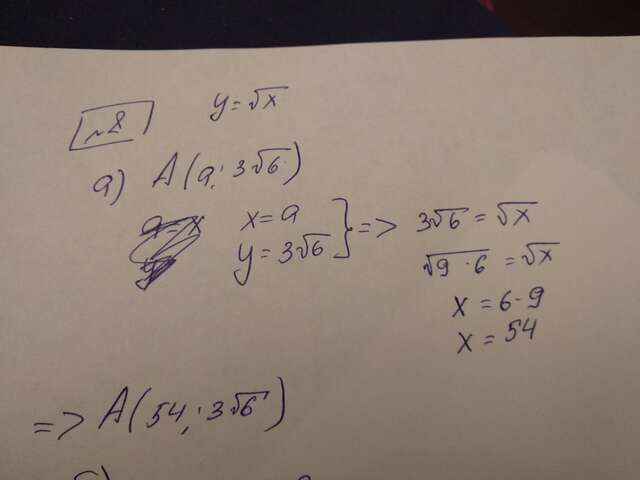 №8 y = √x
а) A(a; 3√6)
x = a
y = 3√6 } => 3√6 = √x
√9·6 = √x
x = 6·9
x = 54
=> A(54; 3√6)